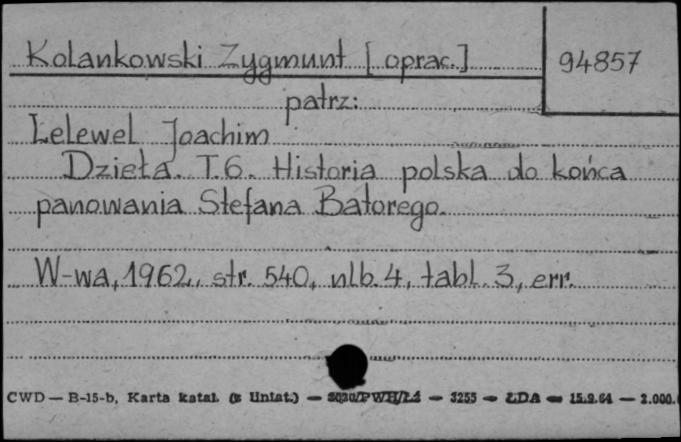 Kolankowski Zygmunt [oprac.] 94857
patrz:
Lelewel Joachim
Dzieła. T.6. Historia polska do końca
panowania Stefana Batorego.
W-wa, 1962, str. 540, nlb. 4, tabl. 3, err.
CWD — B-15-b, Karta katal. (z liniat.) — — 3255 — ŁDA — 15.9.64 — 2.000.